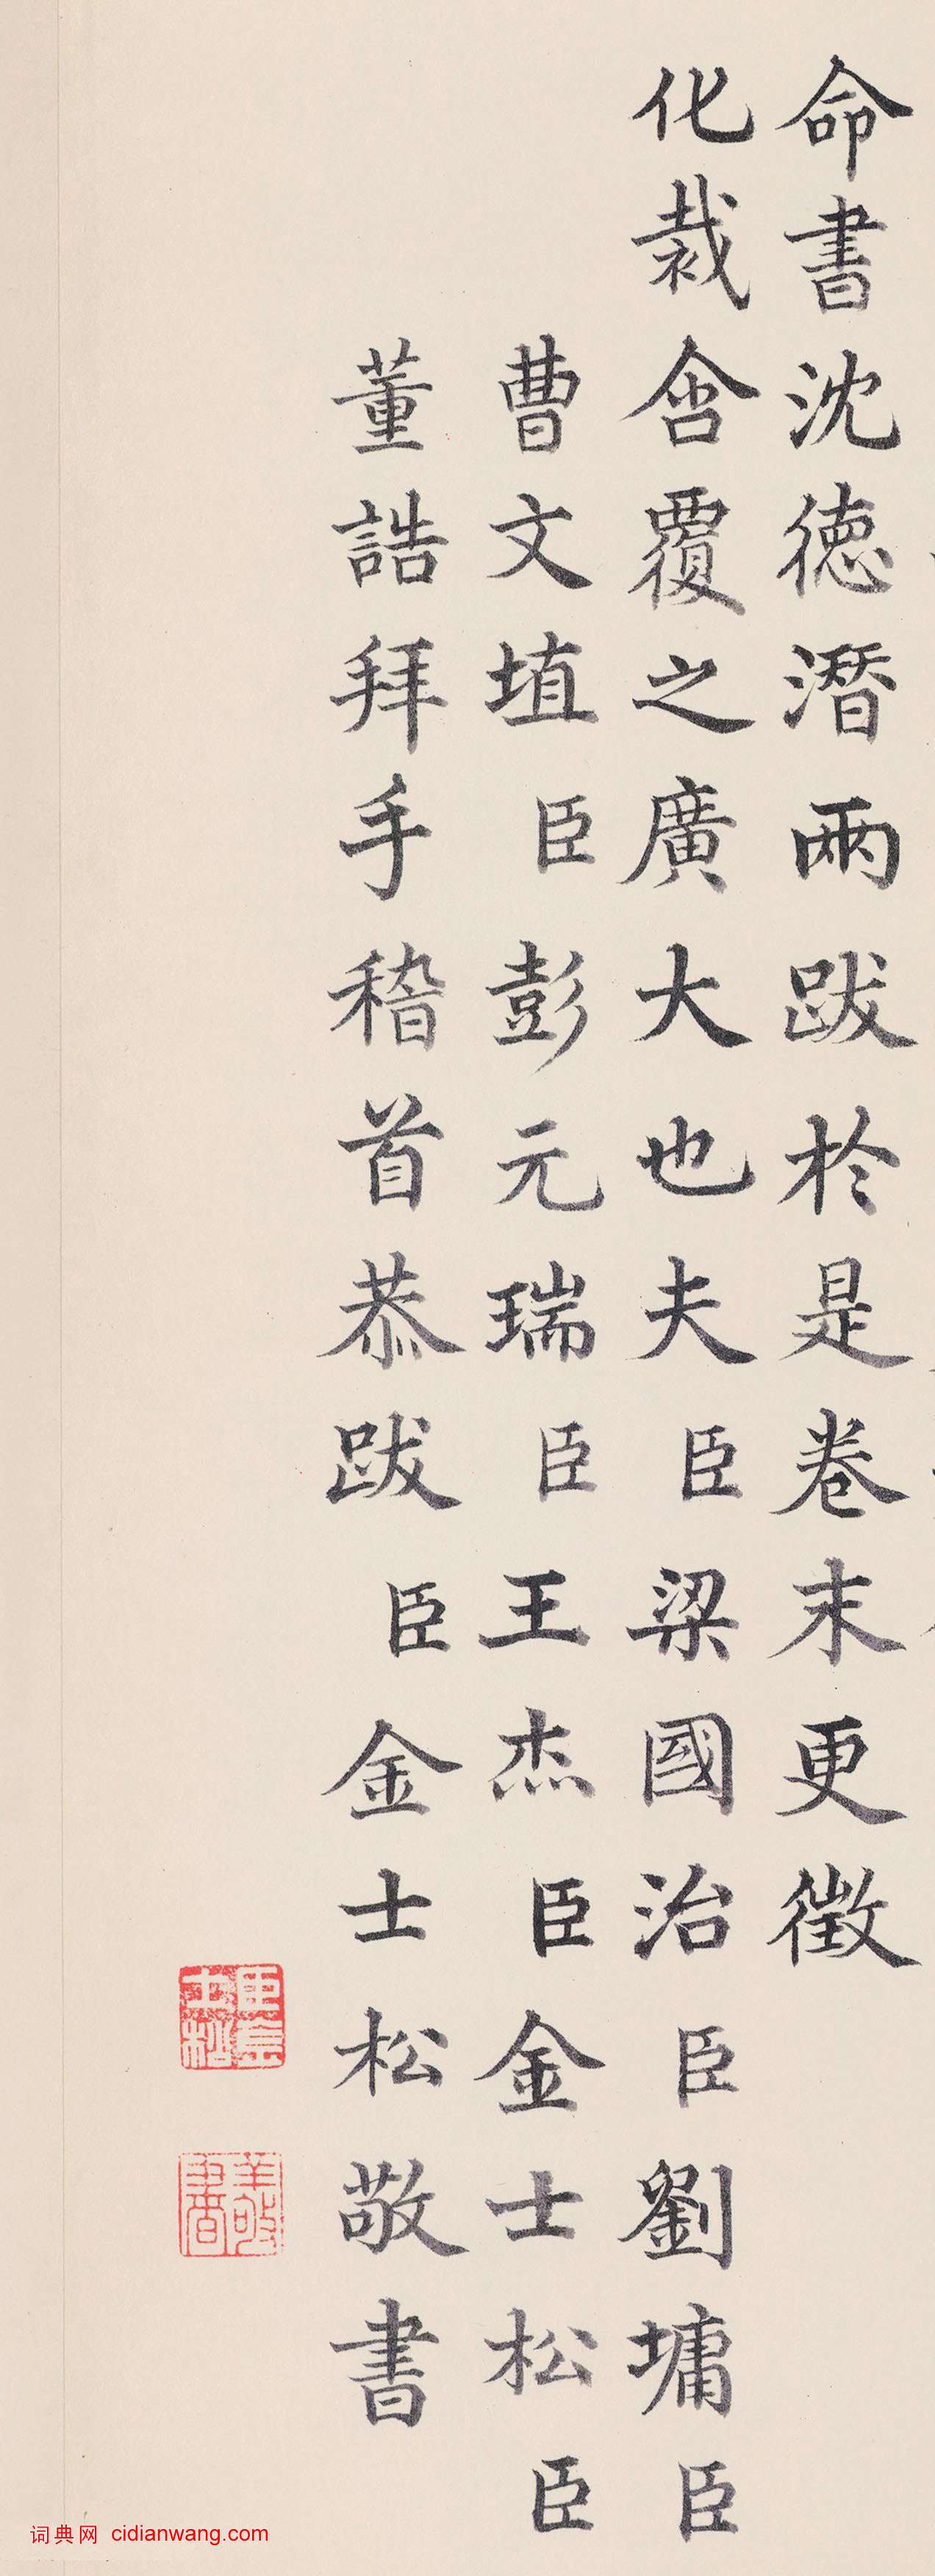 命書沈德潛兩跋於是卷末更徵
化裁含覆之廣大也夫臣梁國治臣劉墉臣
曹文埴臣彭元瑞臣王杰臣金士松臣
董誥拜手稽首恭跋臣金士松敬書
臣金士松
美敬書
词典网 cidianwang.com